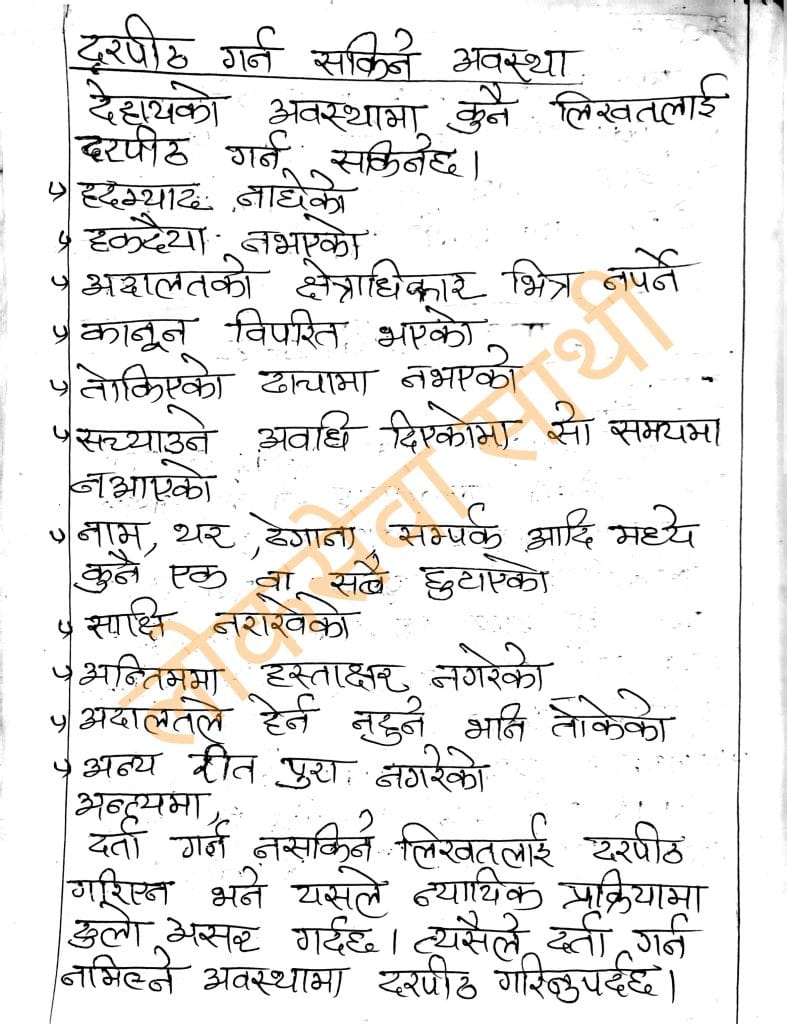 दरपीठ गर्न सकिने अवस्था
देहायको अवस्थामा कुनै लिखतलाई
दरपीठ गर्न सकिनेछ।
हदम्याद नाघेको
हकदैया नभएको
अदालतको क्षेत्राधिकार भित्र नपर्ने
कानून विपरित भएको
तोकिएको ढाचामा नभएको
सच्याउने अवधि दिएकोमा सो समयमा
नआएको
नाम, थर, ठेगाना, सम्पर्क आदि मध्ये
कुनै एक वा सबै छुटाएको
साक्षि नराखेको
अन्तिममा हस्ताक्षर नगरेको
अदालतले हेर्न नहुने भनि तोकेको
अन्य रीत पुरा नगरेको
अन्त्यमा,
दर्ता गर्न नसकिने लिखतलाई दरपीठ
गरिएन भने यसले न्यायिक प्रक्रियामा
ठुलो असर गर्दछ। त्यसैले दर्ता गर्न
नमिल्ने अवस्थामा दरपीठ गरिनुपर्दछ।
लोकसेवा साथी